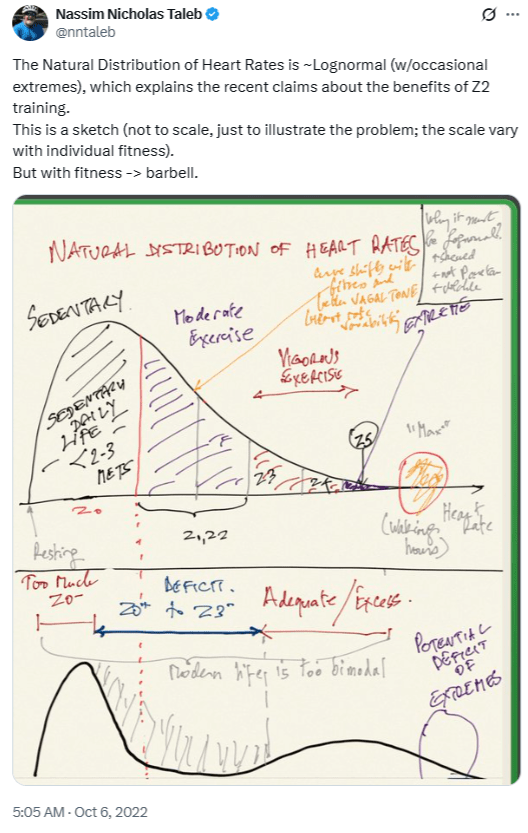 Nassim Nicholas Taleb
@nntaleb
The Natural Distribution of Heart Rates is ~Lognormal (w/occasional
extremes), which explains the recent claims about the benefits of Z2
training.
This is a sketch (not to scale, just to illustrate the problem; the scale vary
with individual fitness).
But with fitness -> barbell.
NATURAL DISTRIBUTION OF HEART RATES
Why it must
be Lognormal?
+ skewed
+ not
+ 
SEDENTARY
Moderate
Exercise
curve shifts with
fitness and
VAGAL TONE
(Heart rate
variability)
EXTREME
VIGOROUS
EXERCISE
SEDENTARY
DAILY
LIFE
<2-3
METS
Z5
"Max"
Z3
Z4
Z0
Z1, Z2
Heart
Rate
(Waking
hours)
Resting
Too Much
Z0-
DEFICIT.
Z0+ to Z3-
Adequate/Excess.
Modern life is too bimodal
POTENTIAL
DEFICIT
OF
EXTREMES
5:05 AM · Oct 6, 2022